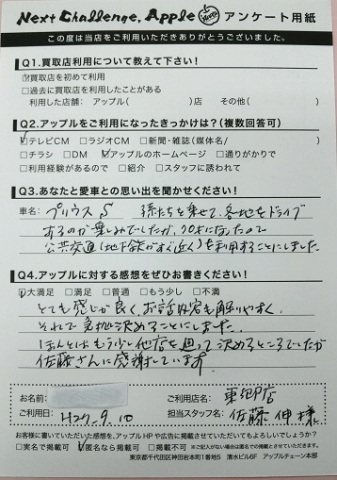 Next Challenge, Apple Hero アンケート用紙
この度は当店をご利用いただきありがとうございました。
Q1.買取店利用について教えて下さい!
☑買取店を初めて利用
□過去に買取店を利用したことがある
利用した店舗: アップル( )店 その他( )
Q2.アップルをご利用になったきっかけは?(複数回答可)
☑テレビCM □ラジオCM □新聞・雑誌(媒体名/ )
□チラシ □DM ☑アップルのホームページ □通りがかりで
□利用経験があるので □紹介 □スタッフに誘われて
Q3.あなたと愛車との思い出を聞かせください!
車名: プリウス S 孫たちを乗せて、各地をドライブ
するのが楽しみでしたが、70才になったので
公共交通(地下鉄がすぐ近く)を利用することにしました
Q4.アップルに対する感想をぜひお書きください!
☑大満足 □満足 □普通 □もう少し □不満
とても感じが良く、お話内容も解りやすく、
それで 決めることにしました。
ほんとはもう少し他店を廻って決めるところでしたが
佐藤さんに感謝しています。
お名前:
ご利用店名: 店
ご利用日: H27.9.10
担当スタッフ名: 佐藤 伸 様
お客様に書いていただいた感想を、アップルHPや広告に掲載させていただいてもよろしいでしょうか?
□実名で掲載可 ☑匿名なら掲載可 □不可 ※ご記入がない場合は匿名での掲載とさせていただきます。
東京都千代田区神田岩本町1番地5 清水ビル6F アップルチェーン本部